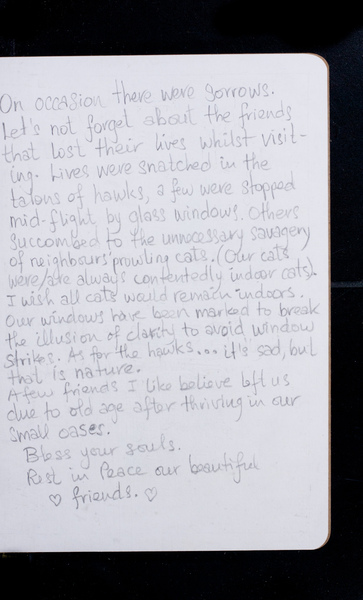 On occasion there were sorrows.
Let's not forget about the friends
that lost their lives whilst visit-
ing. Lives were snatched in the
talons of hawks, a few were stopped
mid-flight by glass windows. Others
succombed to the unnecessary savagery
of neighbours' prowling cats. (Our cats
were/are always contentedly indoor cats).
I wish all cats would remain indoors.
Our windows have been marked to break
the illusion of clarity to avoid window
strikes. As for the hawks... it's sad, but
that is nature.
A few friends I like believe left us
due to old age after thriving in our
small oases.
Bless your souls.
Rest in Peace our beautiful
♡ friends. ♡